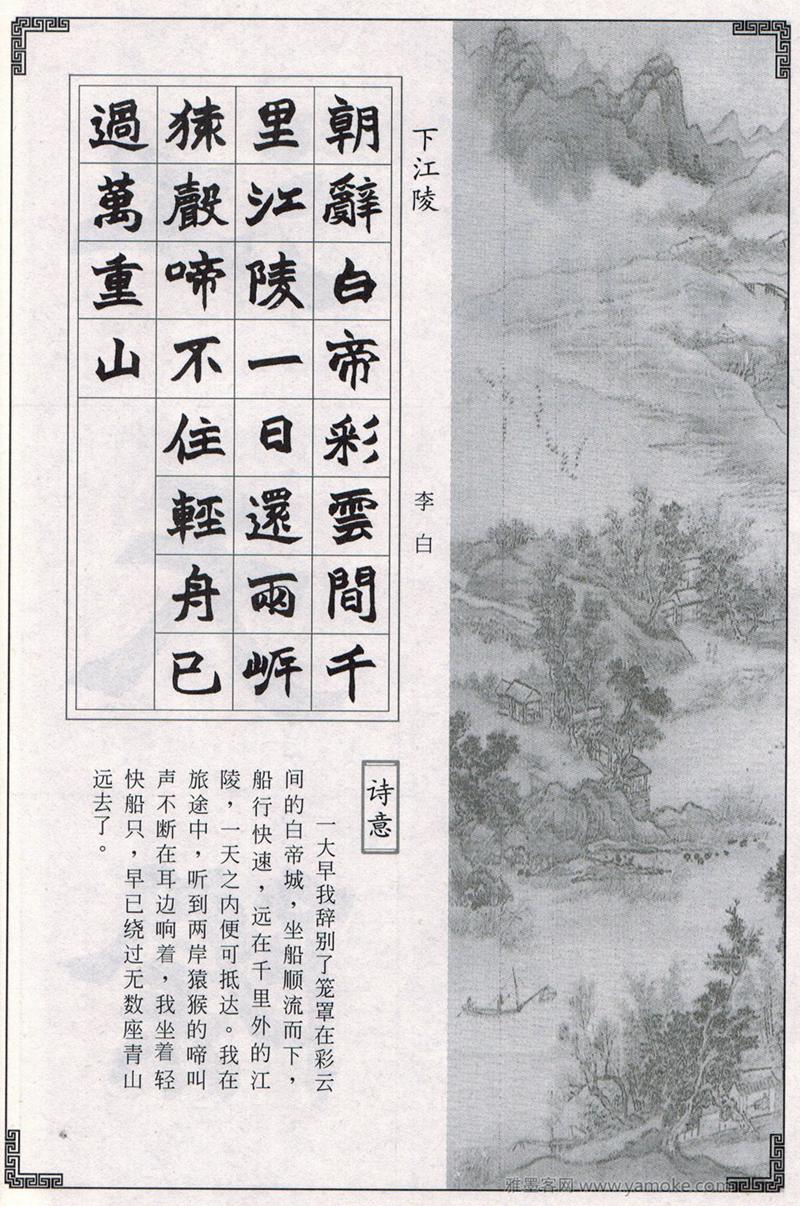 下江陵
李白
朝辭白帝彩雲間千
里江陵一日還兩岓
猿聲啼不住輕舟已
過萬重山
诗意
一大早我辞别了笼罩在彩云
间的白帝城，坐船顺流而下，
船行快速，远在千里外的江
陵，一天之内便可抵达。我在
旅途中，听到两岸猿猴的啼叫
声不断在耳边响着，我坐着轻
快船只，早已绕过无数座青山
远去了。
雅墨客网 www.yamoke.com